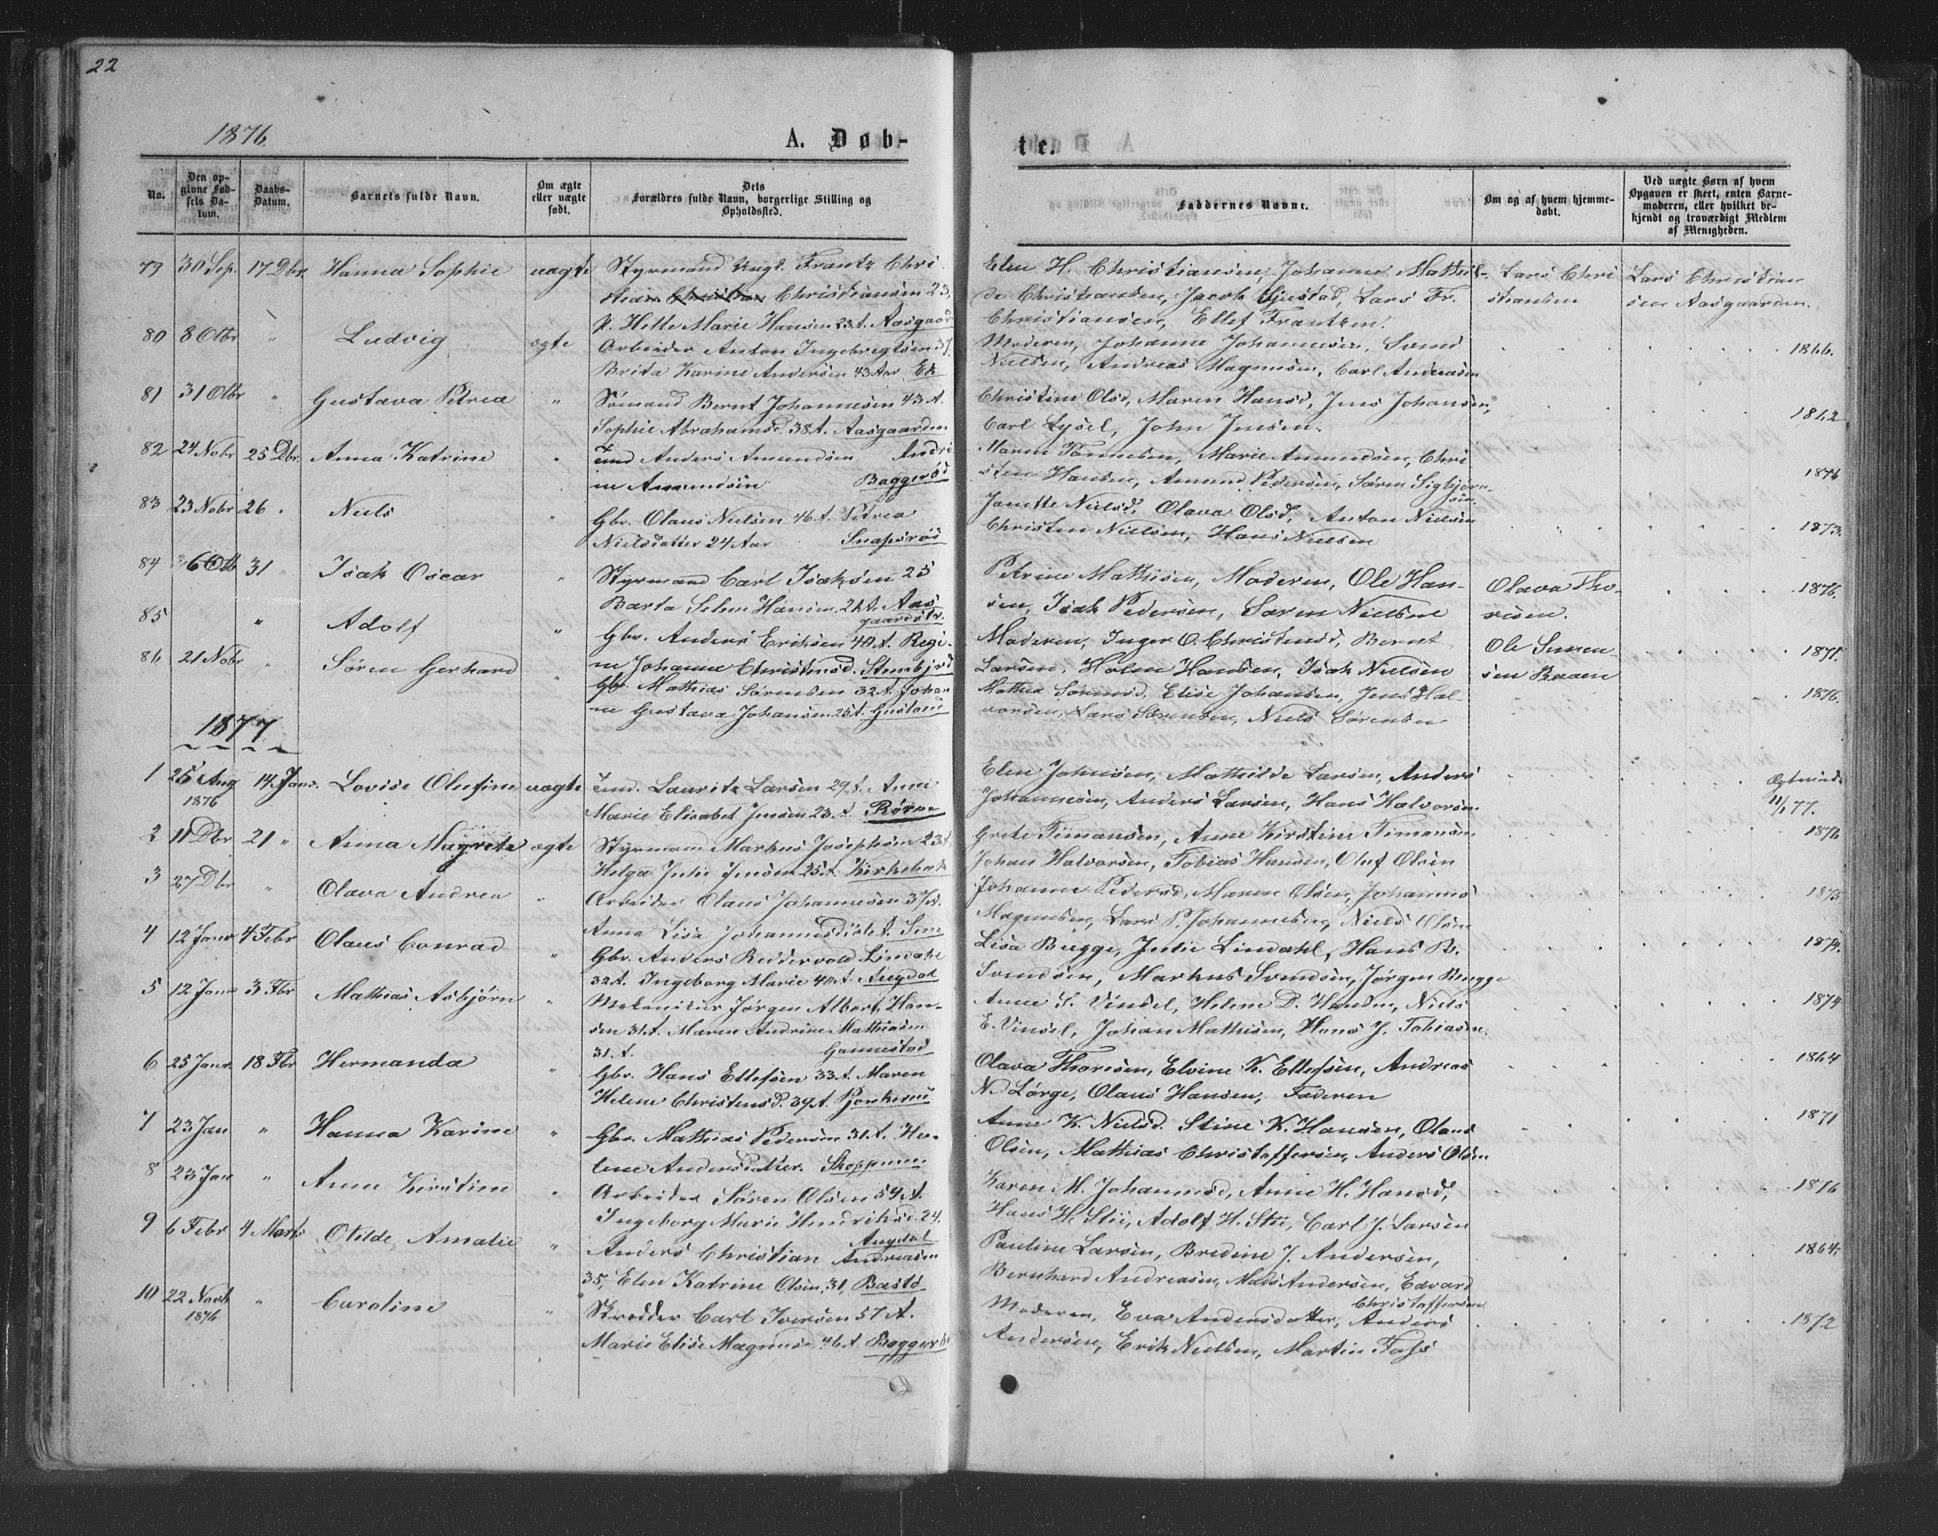 22
1876.
A. Døb-
te.
No.
Den op-
givne Fød-
sels Da-
tum.
Daabs-
Datum.
Barnets fulde Navn.
Om ægte
eller uægte
født.
Dets
Forældres fulde Navn, borgerlige Stilling og
Opholdssted.
Faddernes Navne.
Om og af hvem hjemme-
døbt.
Ved uægte Børn af hvem
Opgaven er skeet, enten Barne-
moderen, eller hvilket be-
kjendt og troværdigt Medlem
af Menigheden.
79 30 Sep. 17 Dbr. Hanna Sophie uægte Styrmand Ungk. Frantz Chri
Christiansen 23,
P. Helle Marie Hansen 23 A. Aasgaard
Elen H. Christiansen, Johanne Mathil-
de Christiansen, Jacob Gjestad, Lars Fr.
Christiansen, Ellef Frantzen.
Lars Chri
stiansen
Lars Christian
sen Aasgaarden.
80 8 Otbr " Ludvig ægte Arbeider Anton Ingebregtsen 37.
Brita Karine Andersen 43 Aar Ek
Moderen, Johanne Johannesen, Svend
Nielsen, Andreas Magnusen, Carl Andreasen
1866.
81 31 Otbr " Gustava Petrea " Sømand Bernt Johannesen 43 A.
Sophie Abrahamsd. 38 A. Aasgaarden
Christine Olsd, Maren Hansd, Jens Johansen,
Carl Lysel, John Jensen.
1862
82 24 Nobr 25 Dbr. Anna Katrine " Inds Anders Amundsen Andri
ne Amundsen Baggerød
Maren Tønnesen, Marie Amundsen, Chri
sten Hansen, Amund Pedersen, Søren Sigbjørn-
sen.
1876
83 23 Nobr 26 " Niels " Gbr. Olaus Nielsen 46 A. Petrea
Nielsdatter 24 Aar Snapsrød
Janette Nielsd, Olava Olsd, Anton Nielsen
Christen Nielsen, Hans Nielsen
1873.
84 6 Otb 31 " Isak Oscar " Styrmand Carl Isaksen 25
Barta Selene Hansen, 21 A. Aas
gaardstr.
Petrine Mathisen, Moderen, Ole Han-
sen, Isak Pedersen, Søren Nielsen
Olava Tho-
risen.
1876.
85 " Adolf " Gbr. Anders Eriksen 40 A. Regi-
ne Johanne Christensd. Stenbjrd
Moderen, Inger O. Christensd, Bernt
Larsen, Holm Hansen, Isak Nielsen
Ole Simen-
sen Baaen
1871.
86 21 Nobr " Søren Gerhard " Gbr. Mathias Sørensen 32 A. Johan
ne Gustava Johansen 25 A. Gustavie
Mathea Sørensd, Elise Johansen, Jens Hal-
vorsen, Lars Sørensen, Niels Sørensen
1876.
1877
1 25 Aug
1876 14 Janr. Lovise Olufine uægte Ind. Lauritz Larsen 29 A. Anne
Marie Elisabet Jensen 23 A. Rørvo
Elen Johnsen, Mathilde Larsen, Anders
Johannesen, Anders Larsen, Hans Halvorsen
11/1 77.
2 11 Dbr 21 " Anna Magrete ægte Styrmand Markus Josephsen 23 A
Helga Julie Jensen 25 A. Kirkebak
Grete Timansen, Anne Kirstine Timansen
Johan Halvorsen, Tobias Hansen, Oluf Olsen
1876
3 27 Dbr " Olava Andrea " Arbeider Olaus Johannesen 37 A.
Anna Lisa Johannesd
Johanne Pedersd, Maren Olsen, Johannes
Magnusen, Lars P. Johannesen, Niels Olsen
1875
4 12 Janr 4 Febr Olaus Conrad " Gbr. Anders Reddervold Lindahl
32 A. Ingeborg Marie 40 A. Augdal
Lisa Bugge, Julie Lindahl, Hans B.
Svendsen, Markus Svendsen, Jørgen Bugge
1874.
5 12 Janr 3 Fbr. Mathias Asbjørn " Mekanikus Jørgen Albert Han-
sen 31 A. Maren Andrine Mathiasen
31. A. Gannestad
Anne S. Vinsel, Helene D. Hansen, Niels
E. Vinsel, Johan Mathisen, Hans J. Tobiasen.
1874
6 25 Janr. 18 Fbr Hermanda " Gbr. Hans Ellefsen 33 A. Maren
Helene Christensd. 39 A.
Olava Thorisen, Elvine K. Ellefsen, Andreas
N. Lørge, Olaus Hansen, Faderen
1864
7 23 Jan " Hanna Karine " Gbr. Mathias Pedersen 31 A. He-
lene Andersdatter. Skoppum
Anne K. Nielsd. Stine K. Hansen, Olaus
Olsen, Mathias Christoffersen, Anders Olsen
1871
8 23 Jan " Anne Kirstine " Arbeider Søren Olsen 54 A.
Ingeborg Marie Hendriksd. 24.
Augdal
Karen M. Johannesd, Anne H. Hansd,
Hans H. Stii, Adolf H. Stii, Carl J. Larsen
1876
9 6 Febr 4 Marts Otilde Amalie " Anders Christian Andreasen
35, Elen Katrine Olsen, 31, Bastø
Pauline Larsen, Bredine J. Andersen,
Bernhard Andreasen, Mads Andersen, Edvard
Christoffersen
1864.
10 22 Novb
1876 " Caroline " Skredder Carl Iversen 57 A.
Marie Elise Magnusd. 46 A. Baggerød
Moderen, Eva Andersdatter, Anders
Andersen, Erik Nielsen, Martin Foss
1872